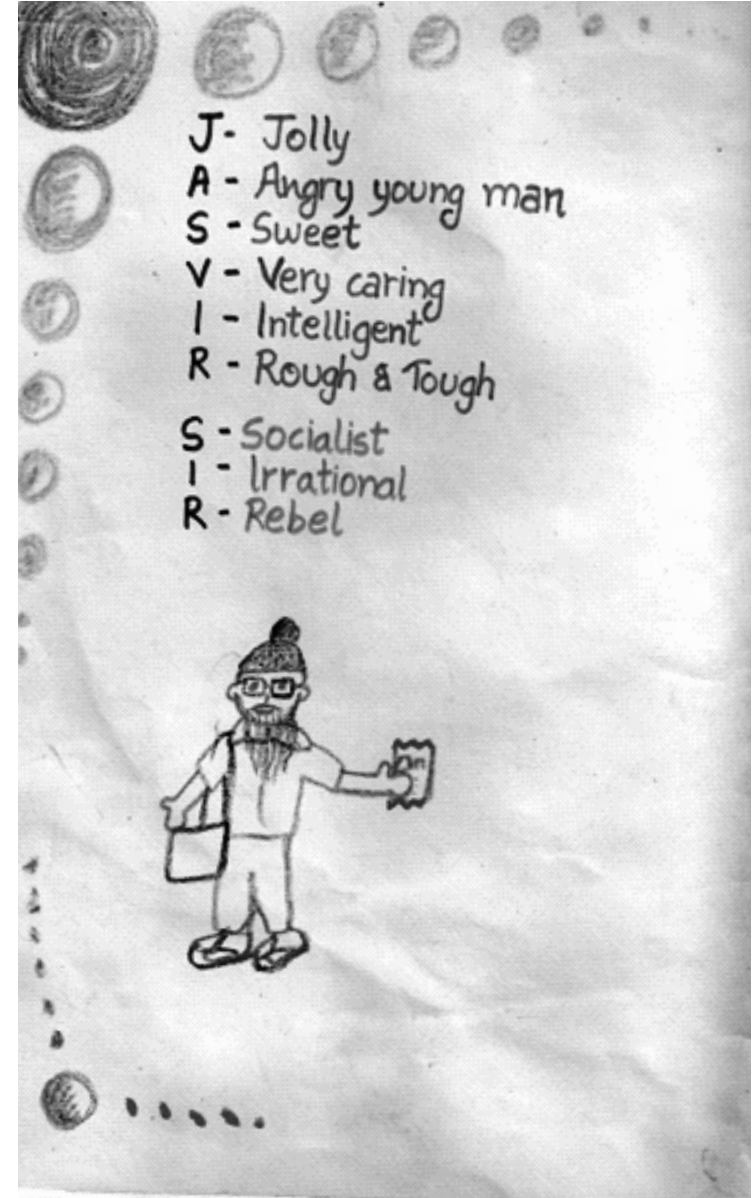 J- Jolly
A - Angry young man
S - Sweet
V - Very caring
I - Intelligent
R - Rough & Tough
S - Socialist
I - Irrational
R - Rebel